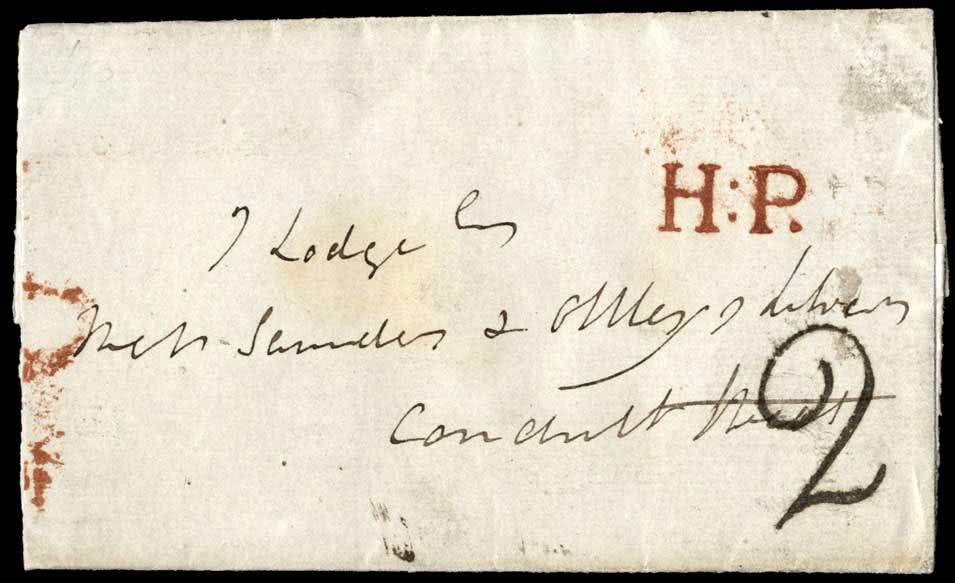 H:P.
J Lodge Esq
Messrs Saunders & Ottleys Library
Conduitt Street
2